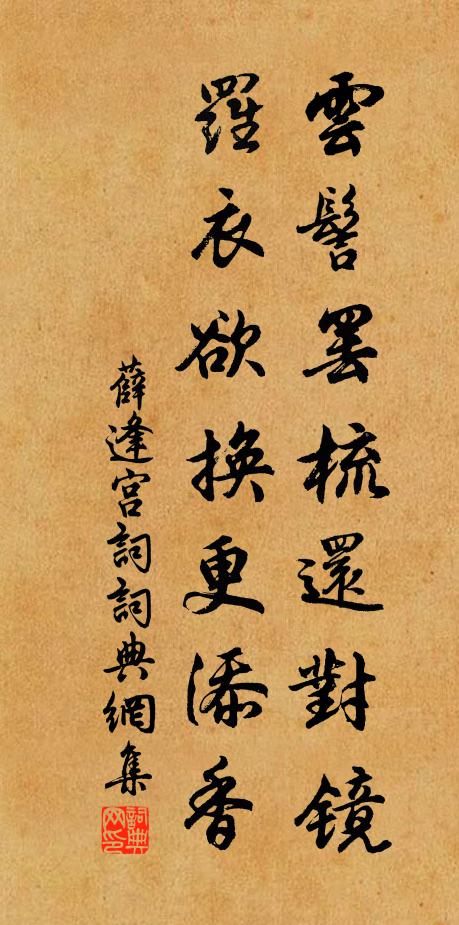 雲髻罷梳還對镜
羅衣欲換更添香
薛逢宫詞詞典網集
詞典网印